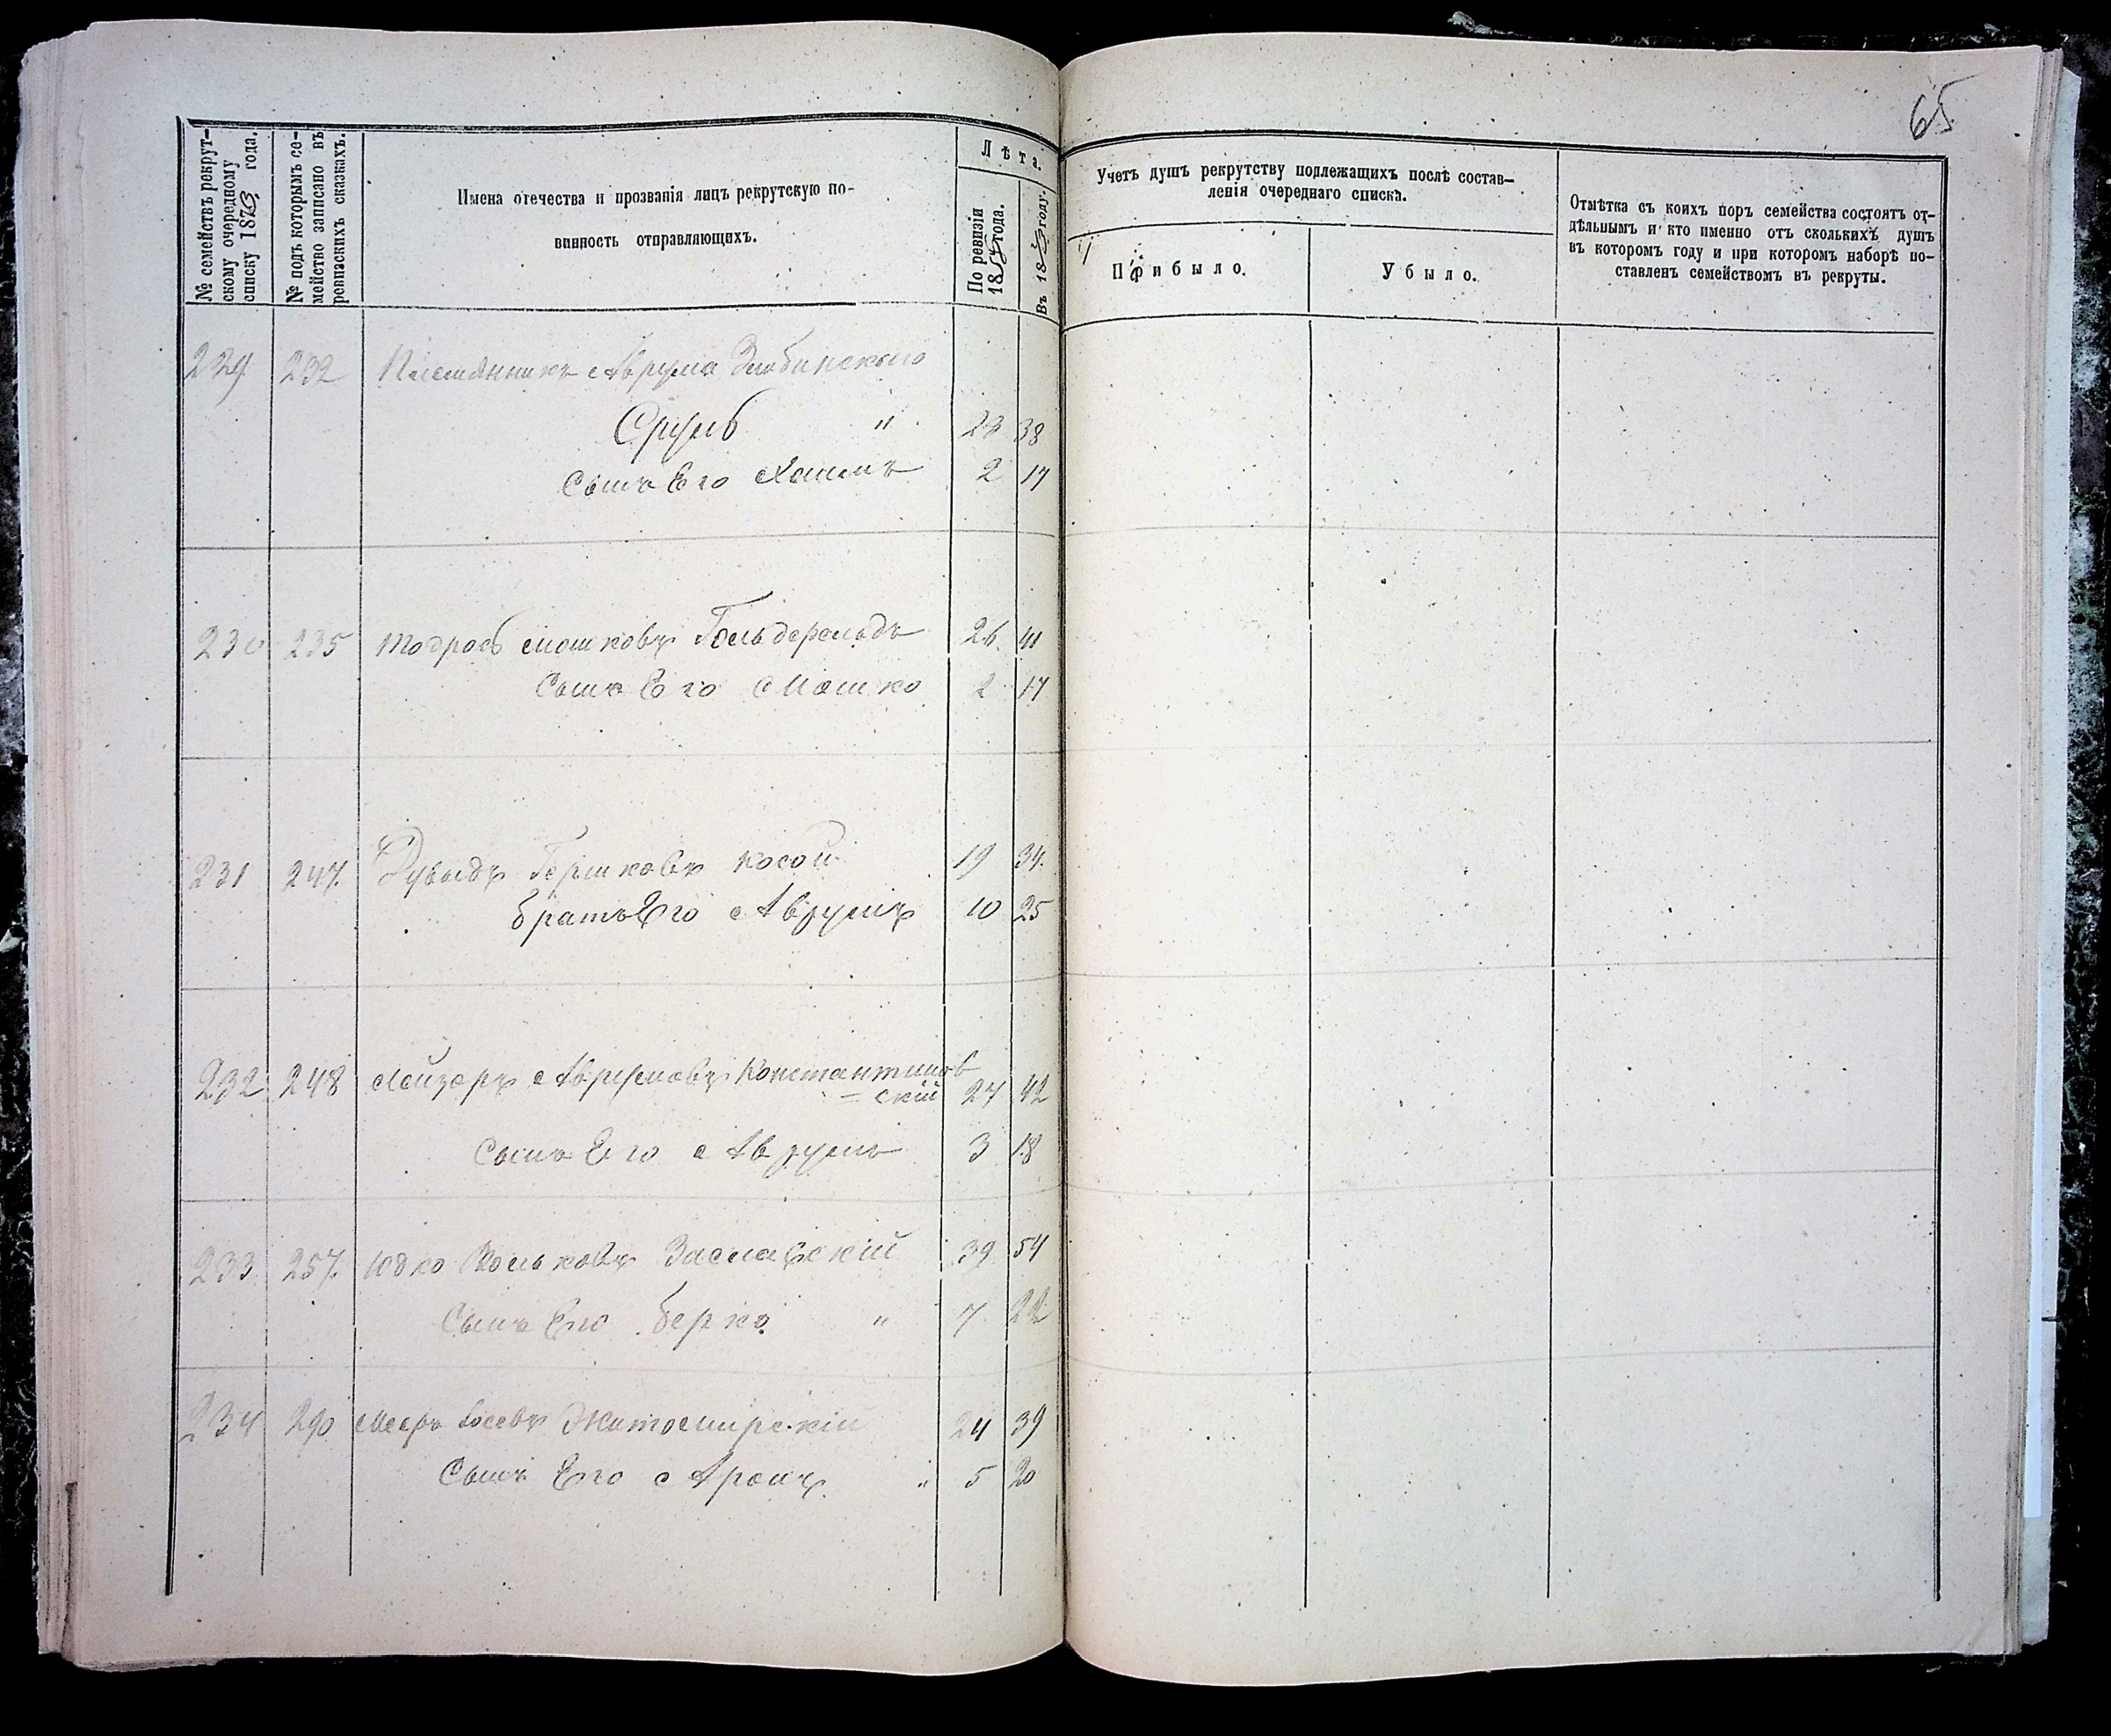 65
№ семействъ рекрут-
скому очередному
списку 1873 года.
№ подъ которымъ се-
мейство записано въ
ревизскихъ сказкахъ.
Имена отечества и прозванія лицъ рекрутскую по-
винность отправляющихъ.
Лѣта.
По ревизіи
18 года.
Въ 1873 году.
Учетъ душъ рекрутству подлежащихъ послѣ состав-
ленія очереднаго списка.
Прибыло.
Убыло.
Отмѣтка съ коихъ поръ семейства состоятъ от-
дѣльнымъ и кто именно отъ сколькихъ душъ
въ которомъ году и при которомъ наборѣ по-
ставленъ семействомъ въ рекруты.
229 232 Племянникъ Аврума
Сруль " 23 38
Сынъ Его 2 17
230 235 Тодрось Мошковъ Гольдфельдъ 26 41
Сынъ Его Мошко 2 17
231 247 Дувидъ Гершковъ Косой 19 34
братъ Его Аврумъ 10 25
232 248 Лейзеръ Аврумовъ Константинов
= скій 27 42
Сынъ Его Аврумъ 3 18
233 257 Юдко Вольковъ Заславскій 39 54
Сынъ Его Берко " 7 22
234 290 Мееръ Іосевъ Житомирскій 24 39
Сынъ Его Аронъ " 5 20